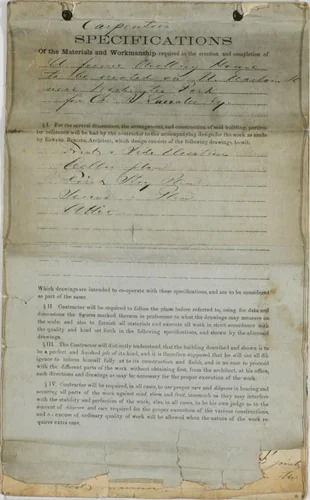 Carpenters
SPECIFICATIONS
Of the Materials and Workmanship required in the erection and completion of
A frame Dwelling House
to be erected on
near Washington Park
for
§ I. For the several dimensions, the arrangement, and construction of said building, particu-
lar reference will be had by the contractor to the accompanying designs for the work as made
by Architect, which design consists of the following drawings to wit:
Front & Side Elevation
Cellar plan
First Floor Plan
Second Plan
Attic
Which drawings are intended to co-operate with these specifications, and are to be considered
as part of the same.
§ II. Contractor will be required to follow the plans before referred to, using for data and
dimensions the figures marked thereon in preference to what the drawings may measure on
the scale, and also to furnish all materials and execute all work in strict accordance with
the quality and kind set forth in the following specifications, and shown by the aforesaid
drawings.
§ III. The Contractor will distinctly understand, that the building described and shown is to
be a perfect and finished job of its kind, and it is therefore supposed that he will use all dili-
gence to inform himself fully as to its construction and finish, and in no case to proceed
with the different parts of the work without obtaining first, from the architect, at his office,
such directions and drawings as may be necessary for the proper execution of the work.
§ IV. Contractor will be required, in all cases, to use proper care and diligence in bracing and
securing all parts of the work against wind, storm and frost, inasmuch as they may interfere
with the stability and perfection of the work; also in all cases, to be his own judge as to the
amount of diligence and care required for the proper execution of the various constructions,
and no excuse of ordinary quality of work will be allowed when the nature of the work re-
quires extra care.